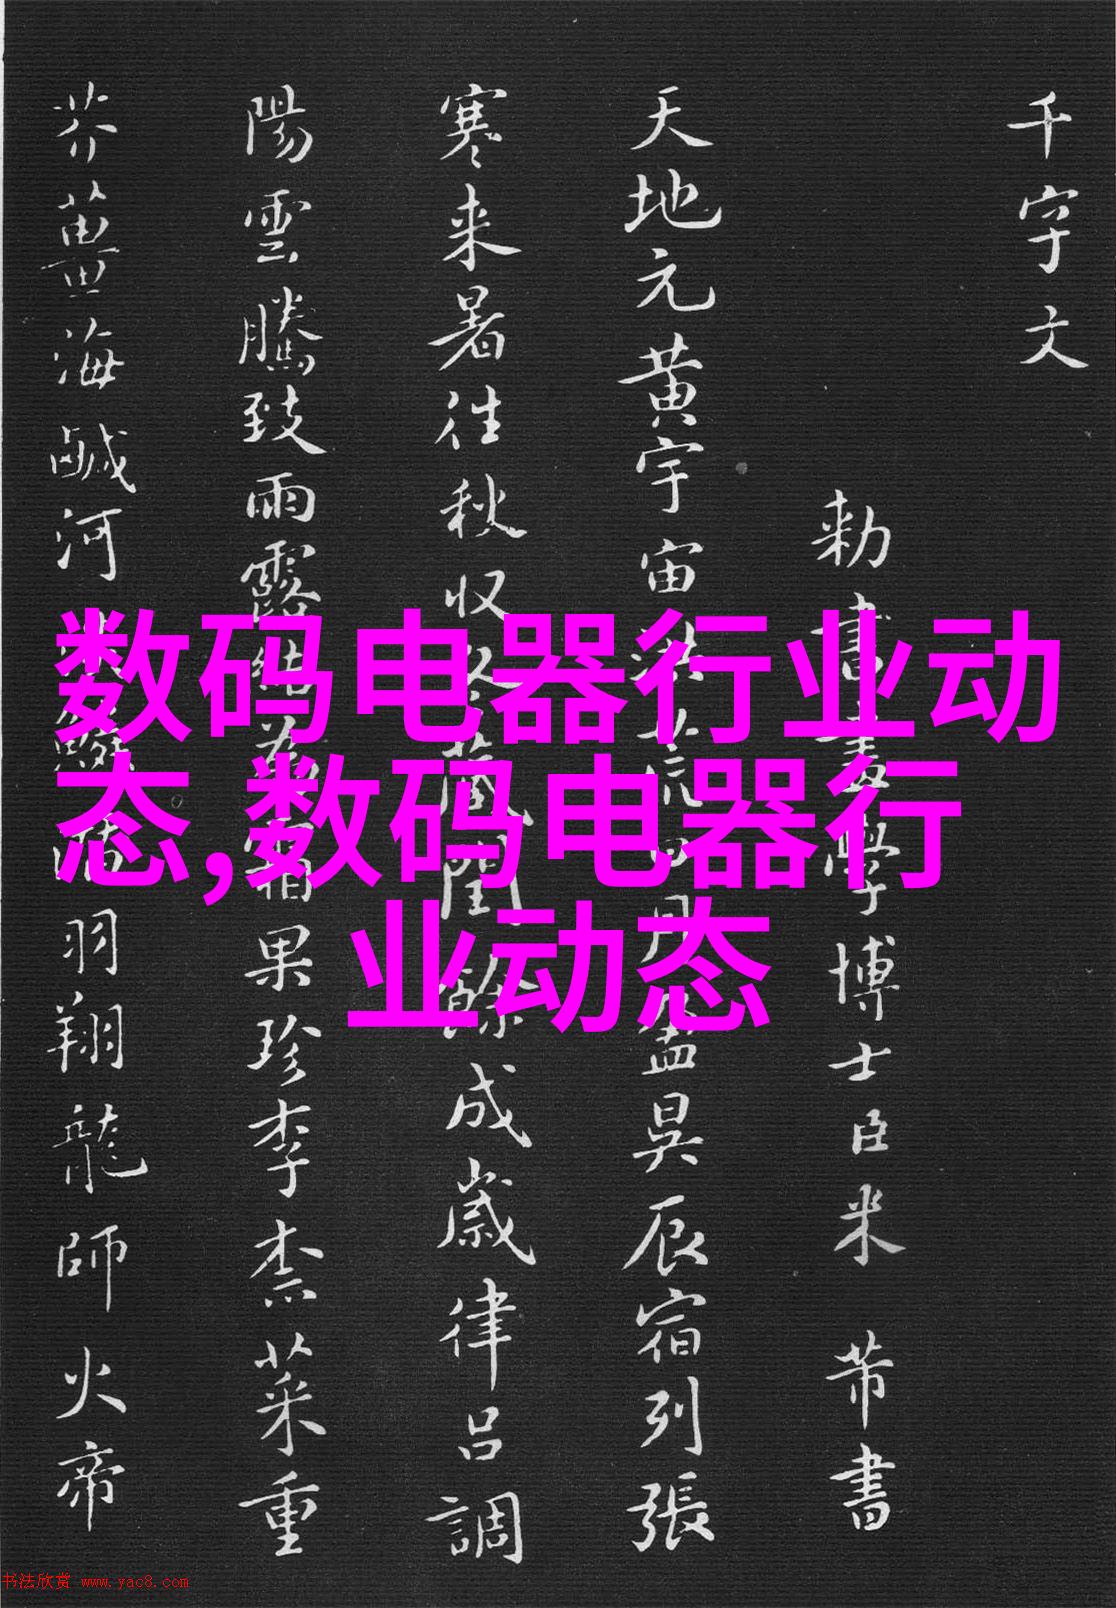 千字文
勅書畫學博士臣米芾書
天地元黄宇宙洪荒日月盈昃辰宿列張
寒来暑往秋收冬藏閏餘成歲律吕調
陽雲騰致雨露結為霜果珍李柰菜重
芥薑海鹹河淡鱗潛羽翔龍師火帝
数码电器行业动
态,数码电器行
业动态
书法欣赏 www.yac8.com